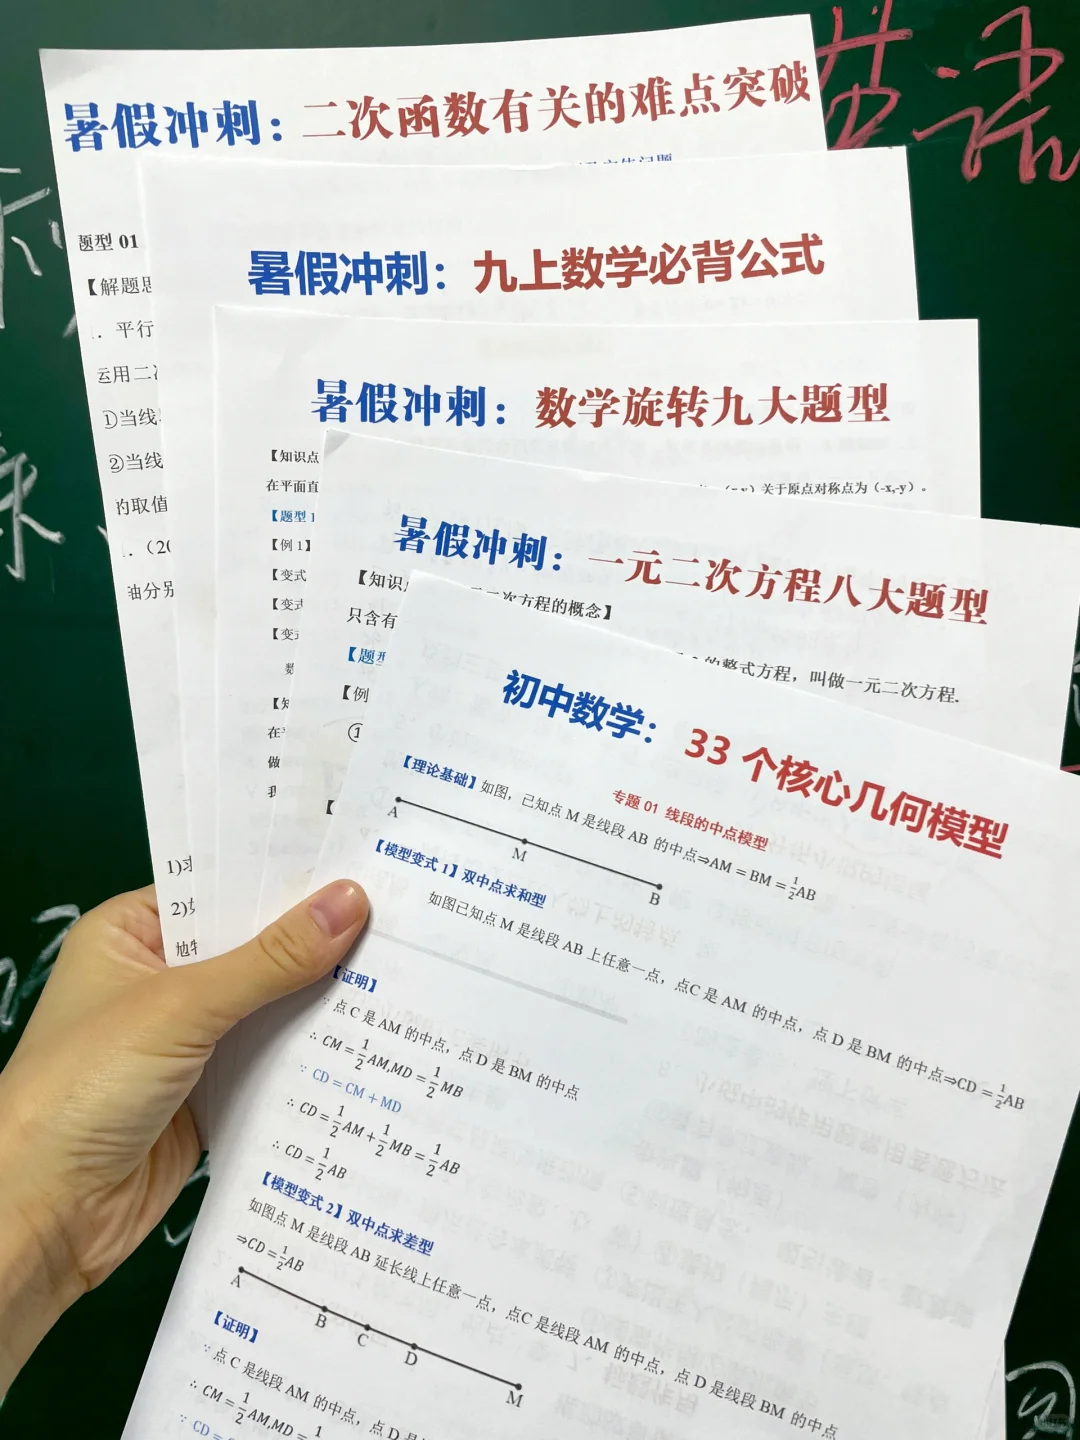 英语
暑假冲刺：二次函数有关的难点突破
题型 01
【解题思
．平行
运用二次
①当线
②当线
的取值
．（20
油分别
1)求
暑假冲刺：九上数学必背公式
暑假冲刺：数学旋转九大题型
【知识点
关于原点对称点为（-x,-y）。
在平面直
【题型 1
【例 1】
【变式
【变式
【变式
数
【知
在平
做
我
暑假冲刺：一元二次方程八大题型
【知识点
二次方程的概念】
只含有
的整式方程，叫做一元二次方程.
【题型
【例
①
初中数学：33 个核心几何模型
专题 01 线段的中点模型
【理论基础】如图，已知点 M 是线段 AB 的中点⇒AM = BM = 1/2 AB
A
M
B
【模型变式 1】双中点求和型
如图已知点 M 是线段 AB 上任意一点，点C 是 AM 的中点，点 D 是 BM 的中点⇒CD = 1/2 AB
【证明】
∵ 点 C 是 AM 的中点，点 D 是 BM 的中点
∴ CM = 1/2 AM,MD = 1/2 MB
∵ CD = CM + MD
∴ CD = 1/2 AM + 1/2 MB = 1/2 AB
∴ CD = 1/2 AB
【模型变式 2】双中点求差型
如图点 M 是线段 AB 延长线上任意一点，点C 是线段 AM 的中点，点 D 是线段 BM 的中点
⇒CD = 1/2 AB
A
B
C
D
M
【证明】
∵ 点 C 是线段 AM 的中点，点 D
∴ CM = 1/2 AM,MD =
∵ CD =